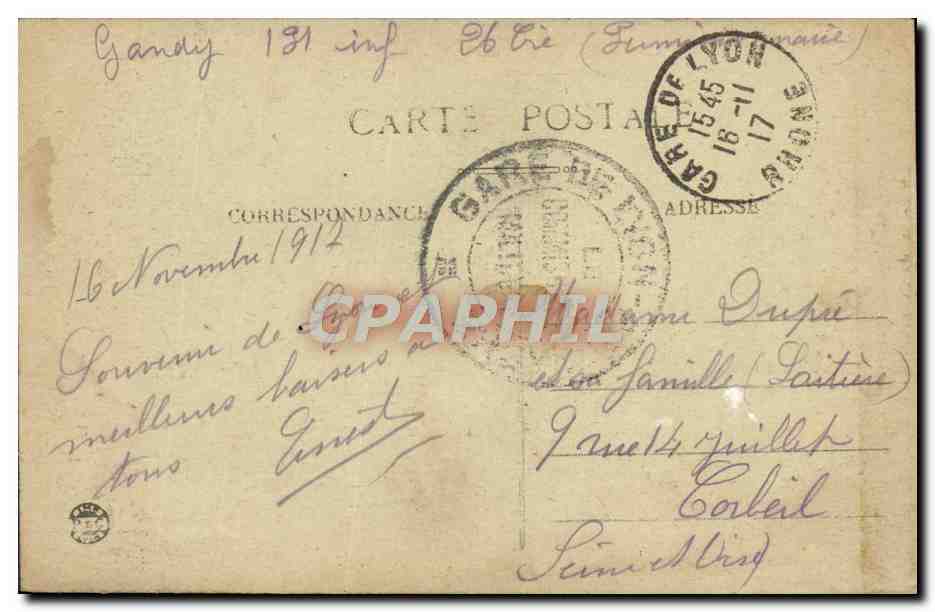 Gandy 131 inf 26 Cie
CARTE POSTALE
GARE DE LYON
15 45
16 -11
17
RHONE
GARE DE LYON
CORRESPONDANCE
ADRESSE
16 Novembre 1917
Souvenir de Lyon et
meilleurs baisers à
tous Ernest
Madame Dupré
et sa famille (Laitière)
9 rue 14 Juillet
Corbeil
Seine et Oise
CPAPHIL